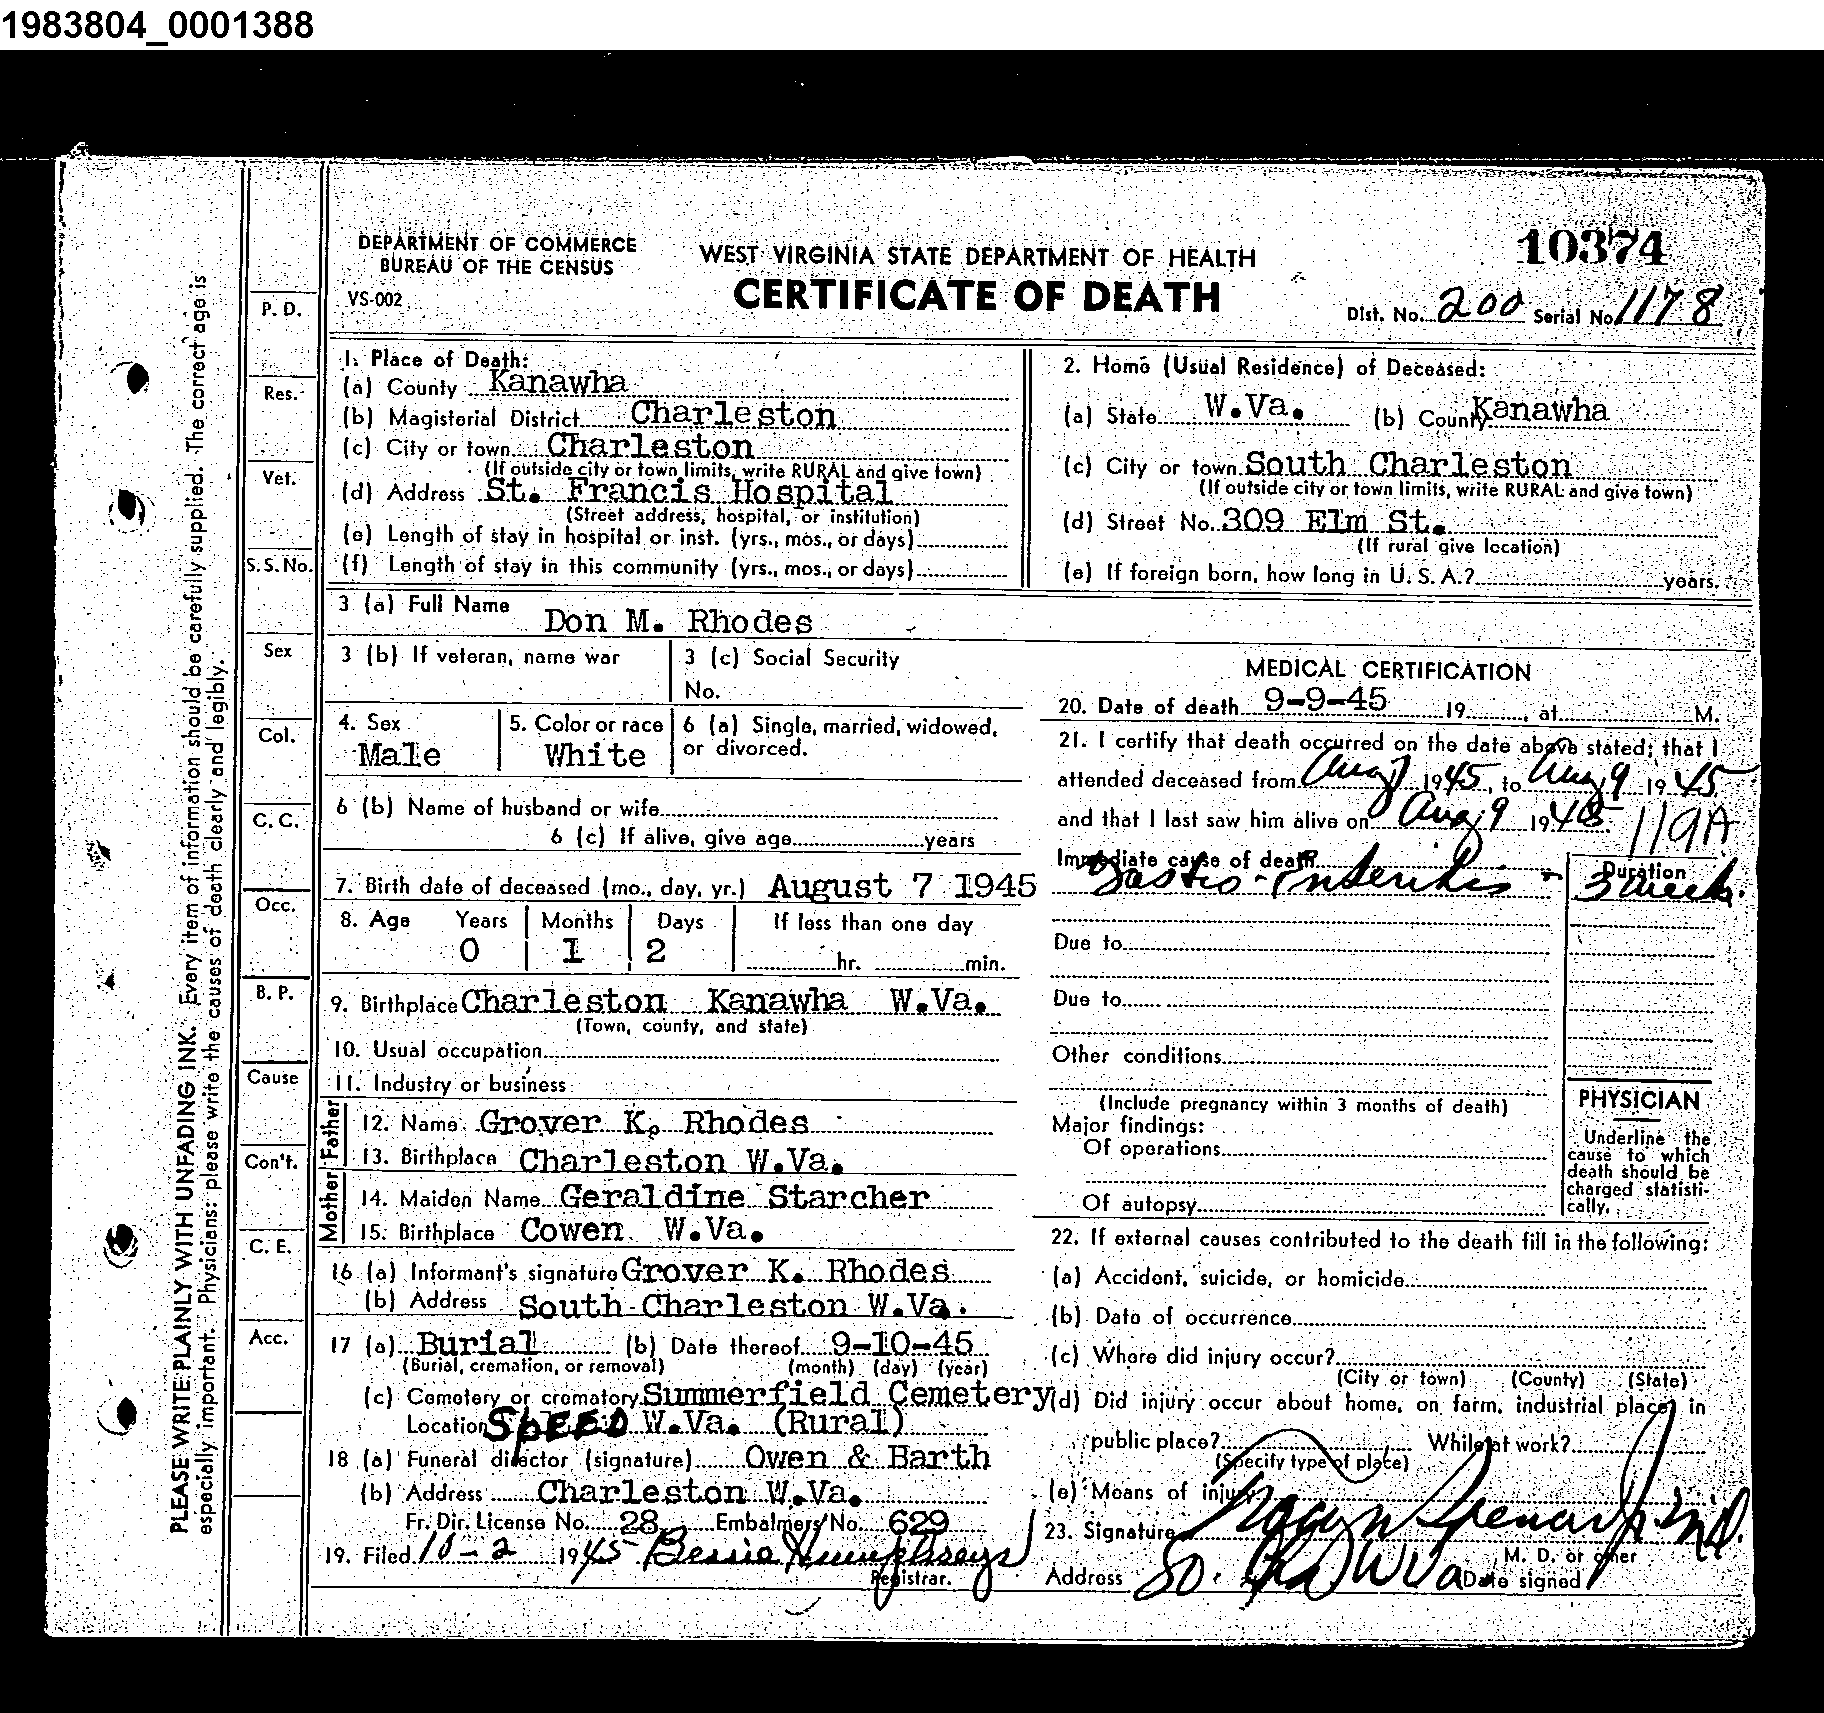 1983804_0001388
DEPARTMENT OF COMMERCE
BUREAU OF THE CENSUS
VS-002
WEST VIRGINIA STATE DEPARTMENT OF HEALTH
CERTIFICATE OF DEATH
10374
Dist. No. 200 Serial No. 1178
PLEASE WRITE PLAINLY WITH UNFADING INK. Every item of information should be carefully supplied. The correct age is
especially important. Physicians: please write the causes of death clearly and legibly.
P. D.
Res.
Vet.
S.S. No.
Sex
Col.
C. C.
Occ.
B. P.
Cause
Con't.
C. E.
Acc.
1. Place of Death:
(a) County Kanawha
(b) Magisterial District Charleston
(c) City or town Charleston
(If outside city or town limits, write RURAL and give town)
(d) Address St. Francis Hospital
(Street address, hospital, or institution)
(e) Length of stay in hospital or inst. (yrs., mos., or days)
(f) Length of stay in this community (yrs., mos., or days)
2. Home (Usual Residence) of Deceased:
(a) State W.Va. (b) County Kanawha
(c) City or town South Charleston
(If outside city or town limits, write RURAL and give town)
(d) Street No. 309 Elm St.
(If rural give location)
(e) If foreign born, how long in U. S. A.? years.
3 (a) Full Name Don M. Rhodes
3 (b) If veteran, name war
3 (c) Social Security
No.
4. Sex
Male
5. Color or race
White
6 (a) Single, married, widowed,
or divorced.
6 (b) Name of husband or wife
6 (c) If alive, give age years
7. Birth date of deceased (mo., day, yr.) August 7 1945
8. Age Years Months Days If less than one day
0 1 2 hr. min.
9. Birthplace Charleston Kanawha W.Va.
(Town, county, and state)
10. Usual occupation
11. Industry or business
Father
12. Name Grover K. Rhodes
13. Birthplace Charleston W.Va.
Mother
14. Maiden Name Geraldine Starcher
15. Birthplace Cowen W.Va.
16 (a) Informant's signature Grover K. Rhodes
(b) Address South Charleston W.Va.
17 (a) Burial (b) Date thereof 9-10-45
(Burial, cremation, or removal) (month) (day) (year)
(c) Cemetery or crematory Summerfield Cemetery
Location SpEED W.Va. (Rural)
18 (a) Funeral director (signature) Owen & Barth
(b) Address Charleston W.Va.
Fr. Dir. License No. 28 Embalmers No. 629
19. Filed 10-2 1945 Bessie Humphreys
Registrar.
MEDICAL CERTIFICATION
20. Date of death 9-9-45 19 , at M.
21. I certify that death occurred on the date above stated; that I
attended deceased from Aug 7 1945, to Aug 9 1945
and that I last saw him alive on Aug 9 1945.
119A
Immediate cause of death
Gastro-Enteritis
Duration
3 week.
Due to
Due to
Other conditions
(Include pregnancy within 3 months of death)
Major findings:
Of operations
Of autopsy
PHYSICIAN
Underline the
cause to which
death should be
charged statisti-
cally.
22. If external causes contributed to the death fill in the following:
(a) Accident, suicide, or homicide
(b) Date of occurrence
(c) Where did injury occur?
(City or town) (County) (State)
(d) Did injury occur about home, on farm, industrial place, in
public place? While at work?
(Specify type of place)
(e) Means of injury
23. Signature M.D.
M. D. or other
Address So. Cha W Va Date signed